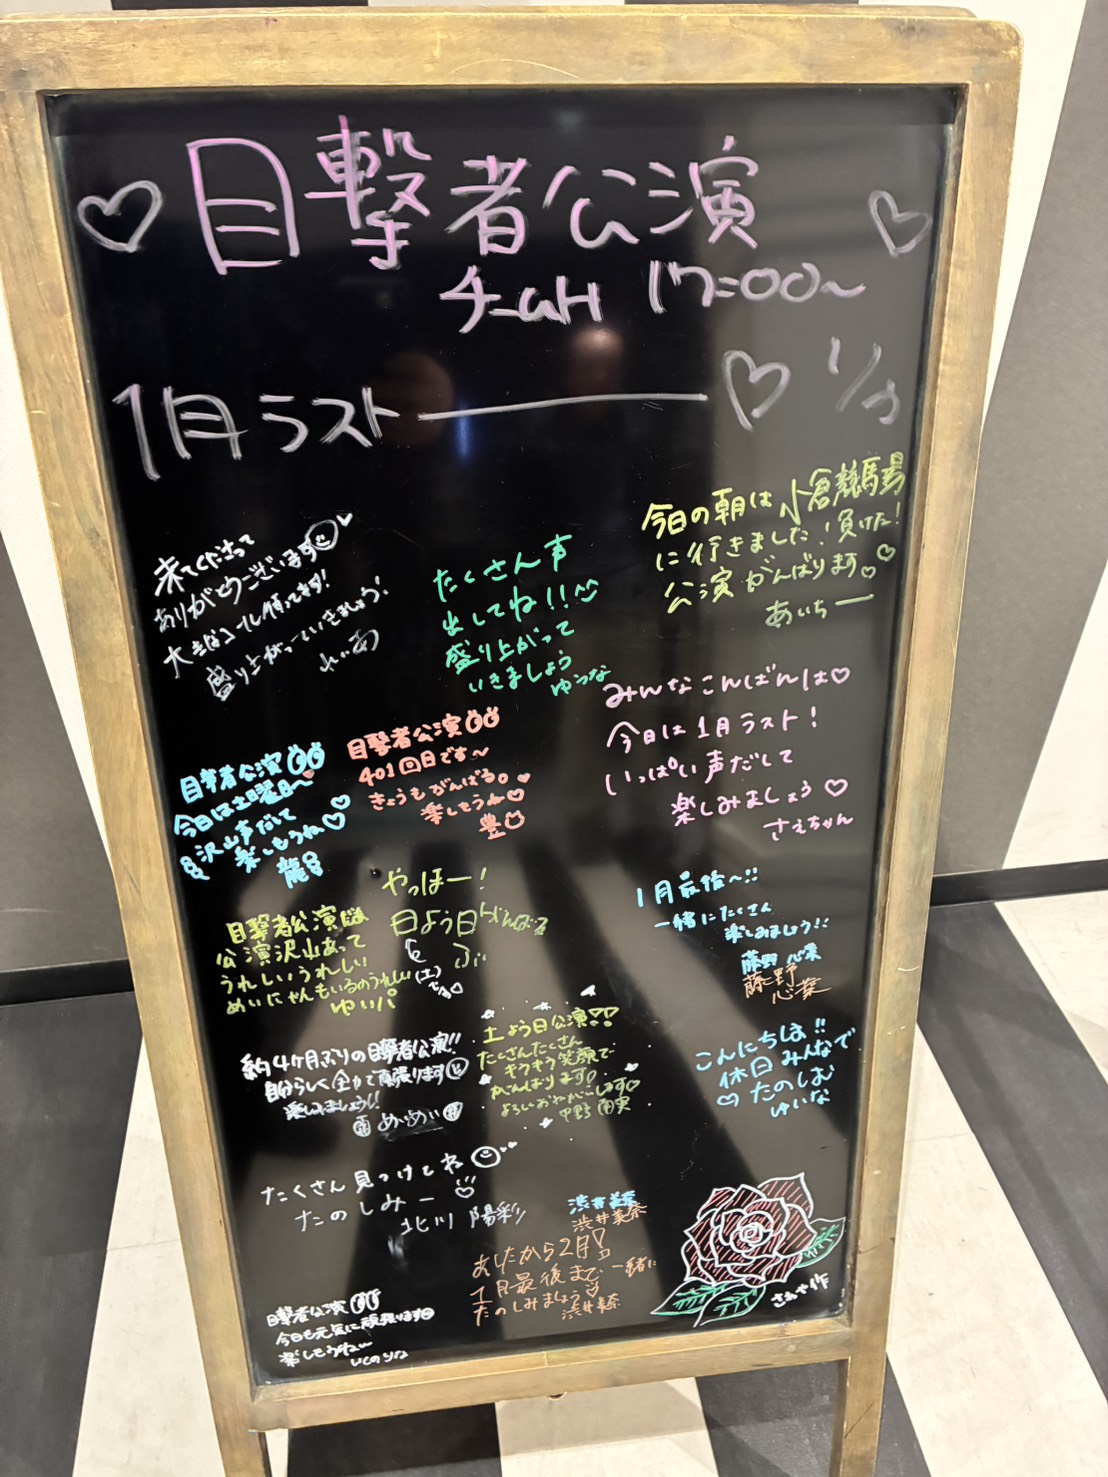 目撃者公演
チームH 17:00~
1月ラスト
来てくださって
ありがとうございます
大きなコール待ってます!
盛り上がっていきましょう!
れいあ
たくさん声
出してね!!
盛り上がって
いきましょう
ゆうな
今日の朝は小倉競馬場
に行きました!負けた!
公演がんばります
あいちー
みんなこんばんは
今日は1月ラスト!
いっぱい声だして
楽しみましょう
さえちゃん
目撃者公演
今日は土曜日〜
沢山声だして
楽しもうね
龍
目撃者公演
401回目です〜
きょうもがんばる。
楽しもうね
豊
やっほー!
日よう日がんばる
(土)
目撃者公演
公演沢山あって
うれしいうれしい
めいにゃんもいるのうれしい
ゆいパ
1月最後〜!!
一緒にたくさん
楽しみましょう!!
藤野 心菜
藤野
心菜
約4ヶ月ぶりの目撃者公演!!
自分らしく全力で頑張ります
楽しみましょう!
めいめい
土よう日公演!!
たくさんたくさん
キラキラ笑顔で
がんばります!
よろしおねがいします
中野 南実
こんにちは!!
休日みんなで
たのしむ
ゆいな
たくさん見つけてね
たのしみー
北川 陽彩
渋井美奈
渋井美奈
あしたから2月!
1月最後まで一緒に
たのしみましょう
渋井美奈
目撃者公演
今日も元気に頑張ります
楽しもうね〜
いしのりな
さわや作